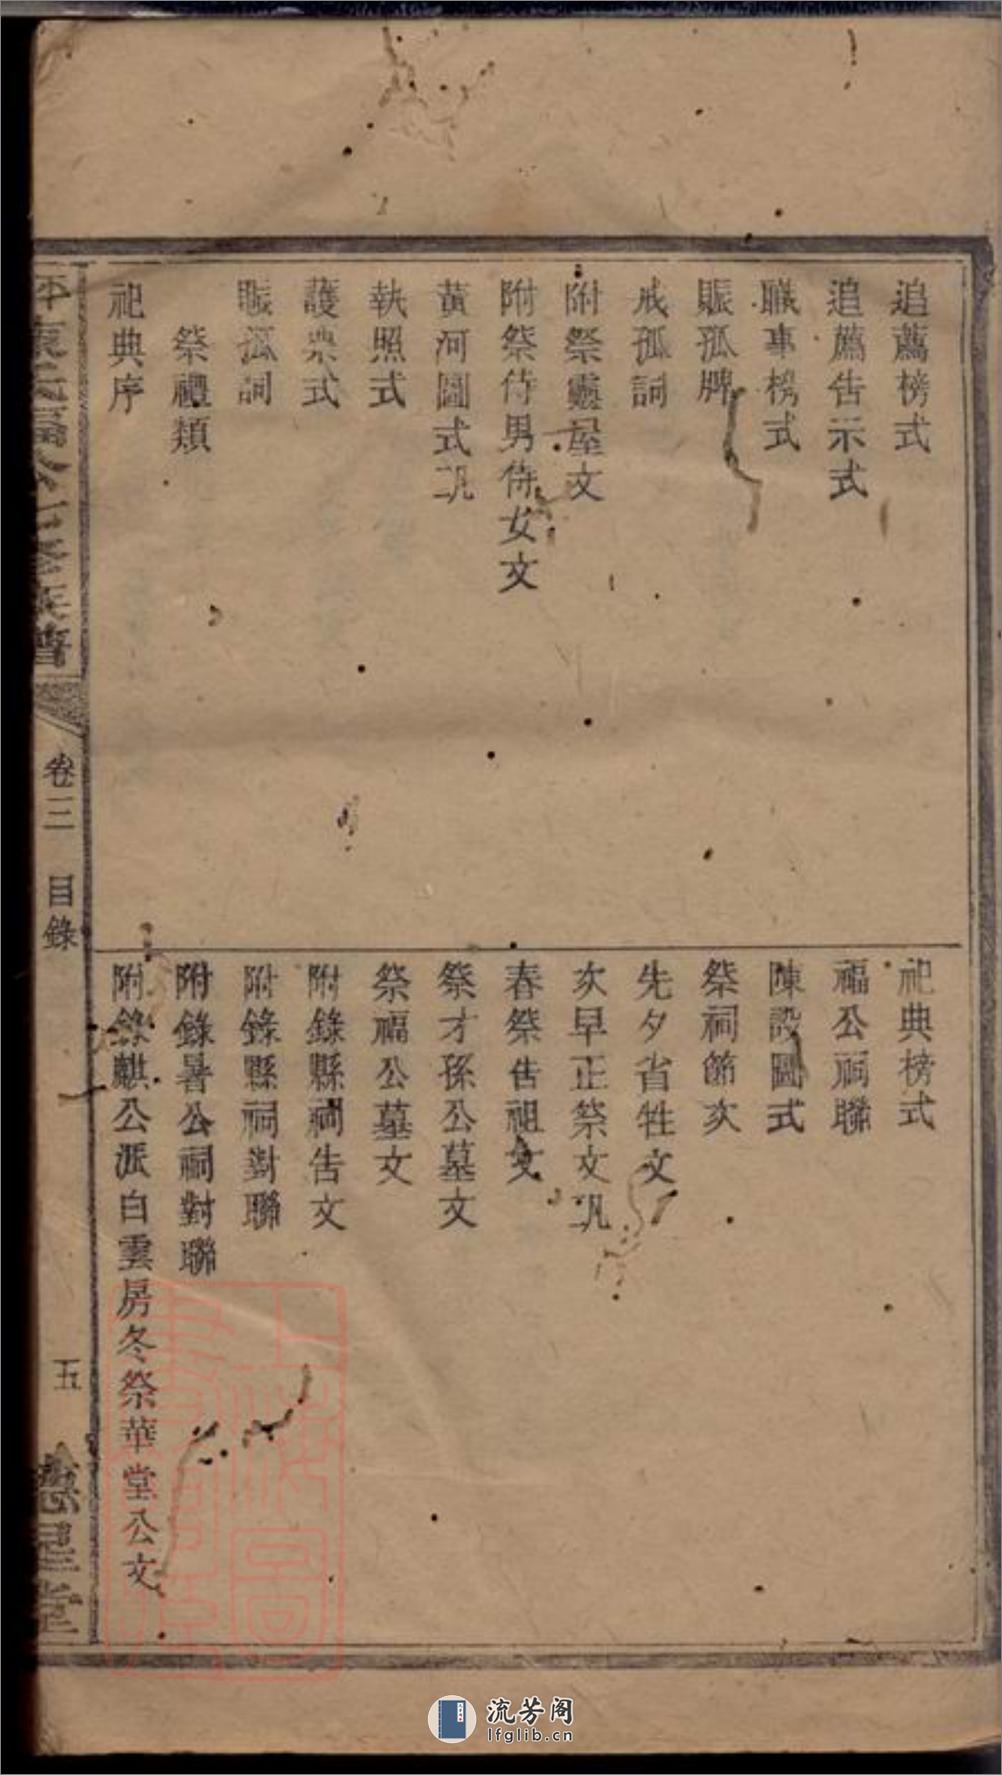 追薦榜式
追薦告示式
職事榜式
賑孤牌
戒孤詞
附祭靈屋文
附祭侍男侍女文
黃河圖式訊
執照式
護票式
賑孤詞
祭禮類
祀典序
祀典榜式
福公祠聯
陳設圖式
祭祠節次
先夕省牲文
次早正祭文訊
春祭告祖文
祭才孫公墓文
祭福公墓文
附錄縣祠告文
附錄縣祠對聯
附錄暑公祠對聯
附錄麒公派白雲房冬祭華堂公文
七修族譜
卷三 目錄
五
堂
流芳阁
lfglib.cn